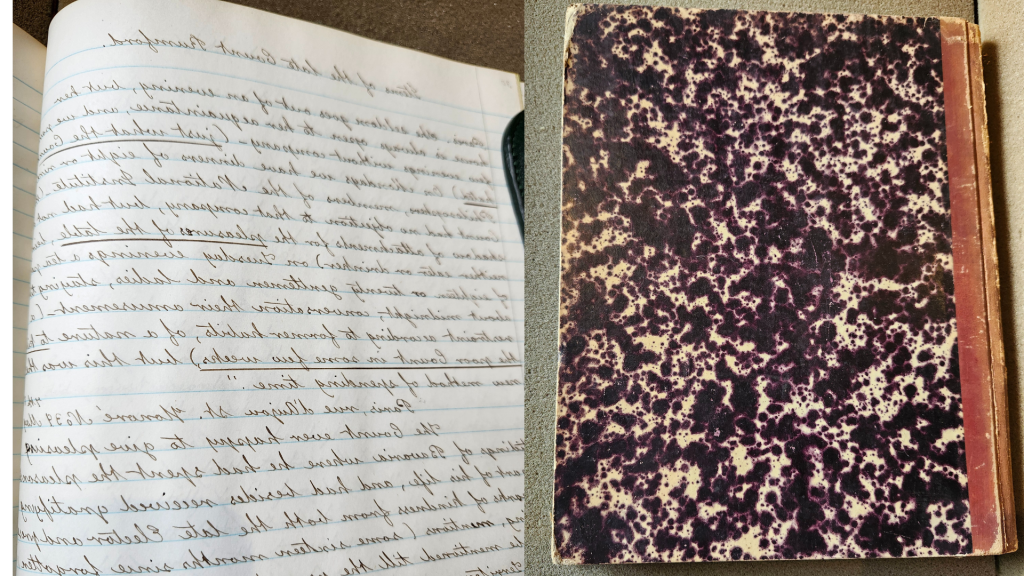 of the late Count Rumford.
Paris. She seldom goes out of an evening, but her
house is always open to her acquaintance and we
few evenings without company – (just what the Coun
hated) On Mondays we have dinner of eight or
Philosophers, members of the National Institute (
Count had no objection to that company, but had not
shadow of attachments for the pleasures of the table,
neither eater or drinker) on Tuesday evenings a tea
of eighteen or twenty gentlemen and ladies, staying
about midnight – conversation their amusement –
restraint according to former habits, of a nature to
the poor Count in some few weeks) but this was
new method of spending time."
"Paris rue d'Anjou St. Honoré No 39
The Count ever happy to give pleasing
tidings of Bavaria where he had spent the pleasan
part of his life, and had besides received gratifying
marks of kindness from both the late Elector and
mentions (some sixteen months since forgotten
mentioned till the